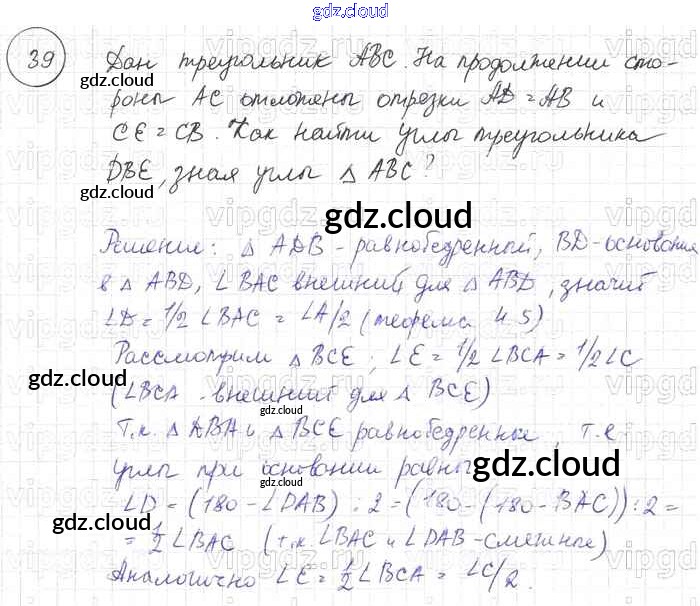 gdz.cloud
39 Дан треугольник ABC. На продолжении сто-
роны AC отложены отрезки AD = AB и
CE = CB. Как найти углы треугольника
DBE, зная углы △ ABC?
gdz.cloud
gdz.cloud
gdz.cloud
Решение: △ ADB - равнобедренный, BD - основание
в △ ABD, ∠BAC внешний для △ ABD, значит
∠D = 1/2 ∠BAC = ∠A/2 (теорема 4.5)
gdz.cloud
Рассмотрим △ BCE; ∠E = 1/2 ∠BCA = 1/2 ∠C
gdz.cloud
(∠BCA - внешний для △ BCE)
gdz.cloud
Т.к. △ ABД и △ BCE равнобедренные, т.е
углы при основании равны
gdz.cloud
∠D = (180 - ∠DAB) : 2 = (180 - (180 - BAC)) : 2 =
= 1/2 ∠BAC (т.к. ∠BAC и ∠DAB - смежные)
gdz.cloud
gdz.cloud
Аналогично ∠E = 1/2 ∠BCA = ∠C/2.
gdz.cloud